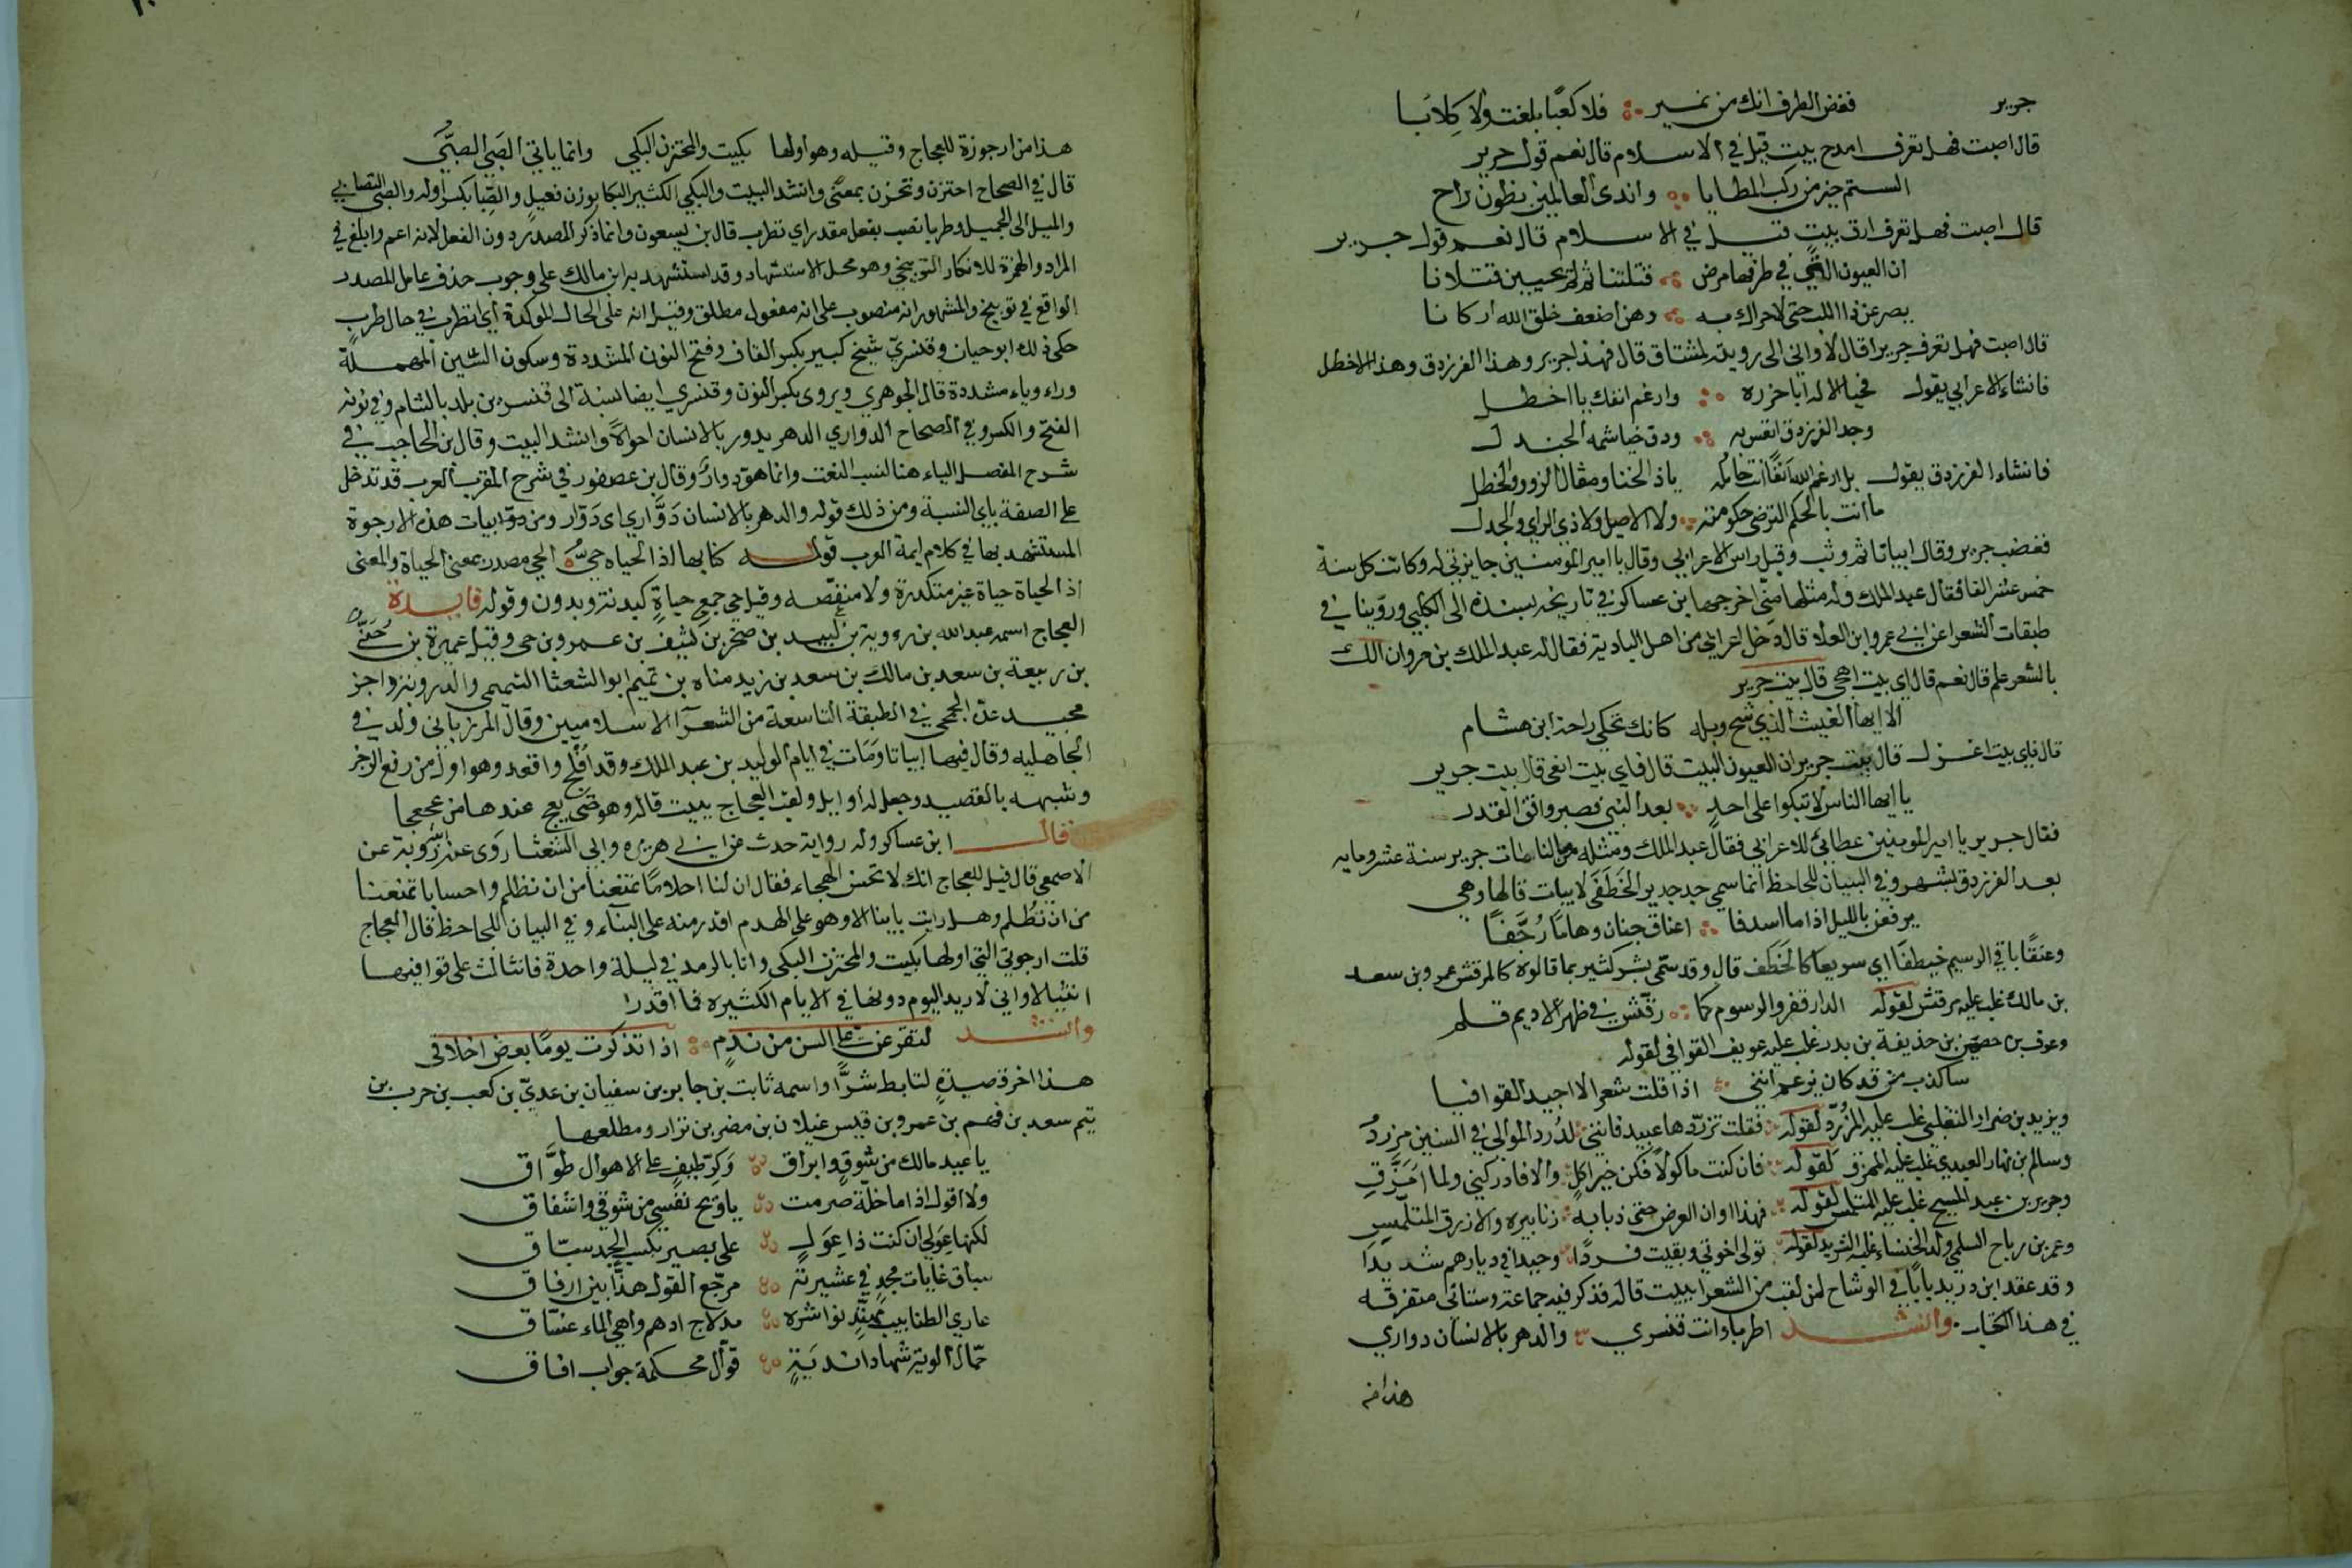 جرير فغض الطرف انك من نمير فلا كعبًا بلغت ولا كِلابَا
قال اصبت فهل تعرف امدح بيت قيل في الاسلام قال نعم قول جرير
الستم خير من ركب المطايا واندى العالمين بطون راح
قال اصبت فهل تعرف ارق بيت قيل في الاسلام قال نعم قول جرير
ان العيون التي في طرفها مرض قتلتنا ثم لم يحيين قتلانا
يصرعن ذا اللب حتى لا حراك به وهن اضعف خلق الله اركانا
قال اصبت فهل تعرف جريرا قال لا واني الى رويته لمشتاق قال فهذا جرير وهذا الفرزدق وهذا الاخطل
فانشاء الاعرابي يقول فحيا الاله ابا حزره وارغم انفك يا اخطل
وجد الفرزدق اتعس به ودق خياشمه الجندل
فانشاء الفرزدق يقول بل ارغم الله انفًا انت حامله ياذا الخنا ومقال الزور والخطل
ما انت بالحكم الترضى حكومته ولا الاصيل ولا ذي الراي والجدل
فغضب جرير وقال ابياتا ثم وثب وقبل راس الاعرابي وقال يا امير المومنين جايزتي له وكانت كل سنة
خمس عشر الفا فقال عبد الملك وله مثلها مني اخرجها بن عساكر في تاريخه بسنده الى الكلبي وروينا في
طبقات الشعرا عن ابي عمرو ابن العلا قال دخل اعرابي من اهل البادية فقال له عبد الملك بن مروان الك
بالشعر علم قال نعم قال اي بيت اهجى قال بيت جرير
الا ايها الغيث الذي شح وبله كانك تحكي راحة ابن هشام
قال فاي بيت اغزل قال بيت جرير ان العيون البيت قال فاي بيت انعى قال بيت جرير
يا ايها الناس لا تبكوا على احدٍ بعد النبي فصبر وافق القدر
فقال جرير يا امير المومنين عطائي للاعرابي فقال عبد الملك ومثله من مالنا مات جرير سنة عشر ومايه
بعد الفرزدق بشهر وفي البيان للجاحظ انما سمي جد جرير الخَطَفَى لابيات قالها وهي
يرفعن بالليل اذا ما اسدفا اعناق جنان وهامًا رُجَّفًا
وعنقًا باقي الرسيم خيطفًا اي سريعا كالخطف قال وقد سمى بشر كثير بما قالوه كالمرقش عمرو بن سعد
بن مالك غلب عليه مرقش لقوله الدار قفر والرسوم كما رقّش في ظهر الاديم قلم
وعوف بن حصين بن حذيفة بن بدر غلب عليه عويف القوافي لقوله
ساكذب من قد كان يزعم انني اذا قلت شعرا لا اجيد القوافيا
ويزيد بن ضرار التغلبي غلب عليه المزرّد لقوله فقلت تزرّدها عبيد فانني لدُرد الموالي في السنين مزردُ
وسالم بن نهار العبدي غلب عليه الممزق لقوله فان كنت ماكولا فكن خير اكلٍ والا فادركني ولما امَزَّقِ
وجرير بن عبد المسيح غلب عليه المتلمس لقوله فهذا اوان العرض حتى ذبابه زنابيره والازرق المتلمّس
وعمر بن رياح السلمي ولد الخنساء غلبه الشريد لقوله تولى اخوتي وبقيت فردًا وحيدا في ديارهم شديدا
وقد عقد ابن دريد بابًا في الوشاح لمن لقب من الشعرا ببيت قاله فذكر فيه جماعة وستاتي متفرقه
في هذا الكتاب وانشد اطربا وانت قنسري والدهر بالانسان دواري
هذا من
هذا من ارجوزة للعجاج وقيله وهو اولها بكيت والمحتزن البكي وانما ياتي الصَبَى الصبَّي
قال في الصحاح احتزن وتحزن بمعنًى وانشد البيت والبكي الكثير البكا بوزن فعيل والصِّبا بكسر اوله والصبى التصابي
والميل الى الجميل وطربا نصب بفعل مقدر اي تطرب قال بن يسعون وانما ذكر المصدر دون الفعل لانه اعم وابلغ في
المراد والهمزة للانكار التوبيخي وهو محل الاستشهاد وقد استشهد به ابن مالك على وجوب حذف عامل المصدر
الواقع في توبيخ والمشهور انه منصوب على انه مفعول مطلق وقيل انه على الحال الموكدة أي اتطرب في حال طربٍ
حكى ذلك ابو حيان وقنسريّ شيخ كبير بكسر القاف وفتح النون المشددة وسكون السين المهملة
وراء وياء مشددة قال الجوهري ويروى بكسر النون وقنسري ايضا نسبة الى قنسرين بلد بالشام وفي نونه
الفتح والكسر وفي الصحاح الدواري الدهر يدور بالانسان احوالاً وانشد البيت وقال بن الحاجب في
شرح المفصل الياء هنا لنسب النعت وانما هو دوارٌ وقال بن عصفور في شرح المقرب العرب قد تدخل
على الصفة ياي النسبة ومن ذلك قوله والدهر بالانسان دَوَّاري اي دَوّار ومن ذو ابيات هذه الارجوزة
المستشهد بها في كلام ايمة العرب قوله كنا بها اذ الحياه حِيُّ الحي مصدر بمعنى الحياة والمعنى
اذ الحياة حياة غير متكدرة ولا منغّصه وقيل حي جمع حياةٍ كبدنة وبدون وقوله فايدة
العجاج اسمه عبد الله بن روبة بن لبيد بن صخر بن كثيف بن عمرو بن حى وقيل عميرة بن حُنَيّ
بن ربيعة بن سعد بن مالك بن سعد بن زيد مناه بن تميم ابو الشعثا التميمي والد روبة راجز
مجيد عدّه الجمحي في الطبقة التاسعة من الشعرآ الاسلاميين وقال المرزباني ولد في
الجاهليه وقال فيها ابياتا ومَات في ايام الوليد بن عبد الملك وقد افلج واقعد وهو اول من رفع الرجز
وشبهه بالقصيد وجعل له أوايل ولقب العجاج ببيت قاله وهو حتى يعج عندها من عجعجا
قال ابن عساكر وله رواية حدث عن ابي هريره وابي الشعثا روَى عنه رُوبة عن
الاصمعي قال قيل للعجاج انك لا تحسن الهجاء فقال ان لنا احلامًا تمنعنا من ان نظلم واحسابا تمنعنا
من ان نُظلم وهل رايت بانيا الا وهو على الهدم اقدر منه على البنآء وفي البيان للجاحظ قال العجاج
قلت ارجوزتي التي اولها بكيت والمحتزن البكي وانا بالرمد في ليلة واحدة فانثالت على قوافيها
انثيالا واني لاريد اليوم دونها في الايام الكثيره فما اقدر
وانشد لتقرعنّ عليَّ السن من ندمٍ اذا تذكرت يومًا بعض اخلاقي
هذا اخر قصيدةٍ لتابط شرًّا واسمه ثابت بن جابر بن سفيان بن عديّ بن كعب بن حرب بن
تيم سعد بن فهم بن عمرو بن قيس عيلان بن مضر بن نزار ومطلعها
يا عيد مالك من شوقٍ وابراق وَكرّ طيفٍ على الاهوال طَوَّاق
ولا اقول اذا ما خلّة صرمت ياويح نفسي من شوقي واشفاق
لكنها عِوَلي ان كنت ذا عِوَلٍ على بصير بكسب المجد سبّاق
سباق غايات مجدٍ في عشيرته مرجّع القول هذّا بين ارفاق
عاري الظنابيب ممتدٍّ نواشره مدلاج ادهم واهي الماء غسّاق
حمّال الوية شهاد اندَيَةٍ قوّال محكمة جواب افاق